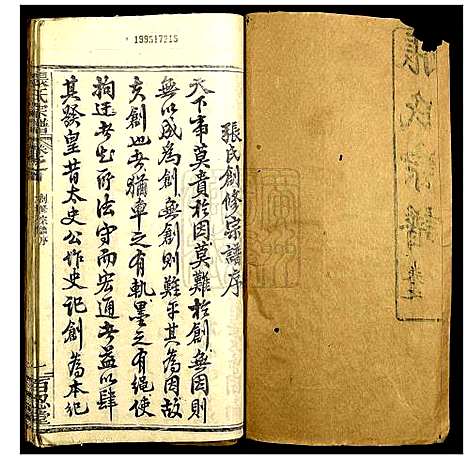 張氏宗譜 卷
張氏創修宗譜序
天下事莫貴於因莫難於創無因則
無以成為創無創則難乎其為因故
夫創也者猶車之有軌墨之有繩使
拘迂者知所法守而宏通者益以肆
其發皇昔太史公作史記創為本紀
張氏宗譜 卷之首
創修宗譜序
一
百忍堂
199517215